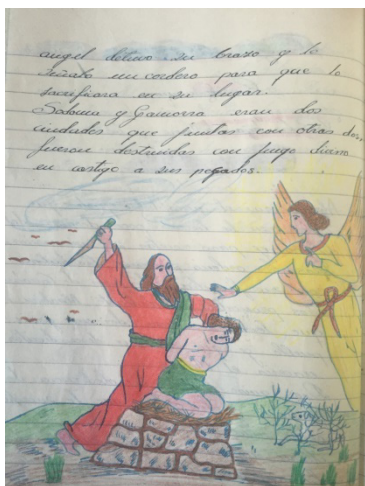 angel detuvo su brazo y le
señalo un cordero para que lo
sacrificara en su lugar.
Sodoma y Gamorra eran dos
ciudades que juntas con otras dos,
fueron destruidas con fuego divino
en castigo a sus pegados.